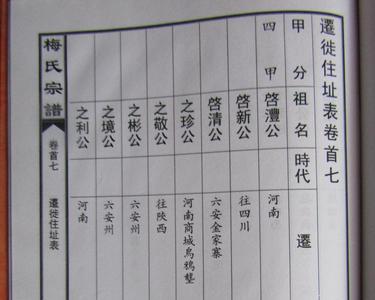 遷徙住址表卷首七
甲分祖名時代遷
四甲 啓灃公 河南
啓新公 往四川
啓清公 六安金家寨
之珍公 河南商城烏鴉壟
之敬公 往陝西
之彬公 六安州
之境公 六安州
之利公 河南
梅氏宗譜 卷首七 遷徙住址表